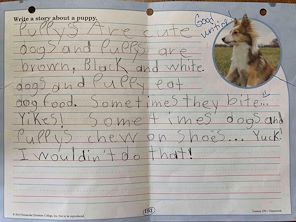 Write a story about a puppy.
Good writing!
Puppys Are cute
dogs and Puppys are
brown, Black and white.
dogs and Puppy eat
dog food. Sometimes they bite...
Yikes! Sometimes dogs and
Puppys chew on shoes... Yuck!
I wouldin't do that!
153